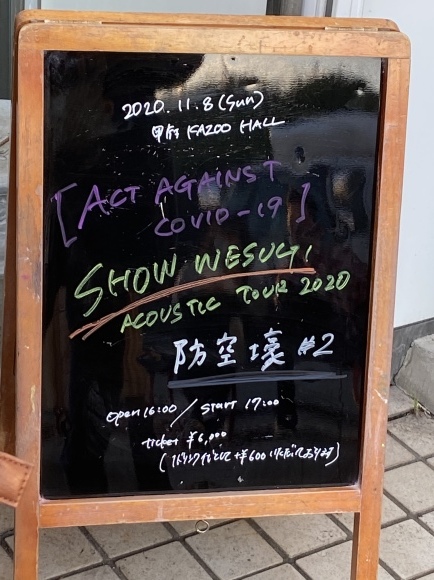 2020.11.8(Sun)
甲府 KAZOO HALL
[ACT AGAINST
COVID-19]
SHOW WESUGI
ACOUSTIC TOUR 2020
防空壕 #2
open 16:00 / start 17:00
ticket ¥6,000
(1ドリンク代として+¥600いただいております)